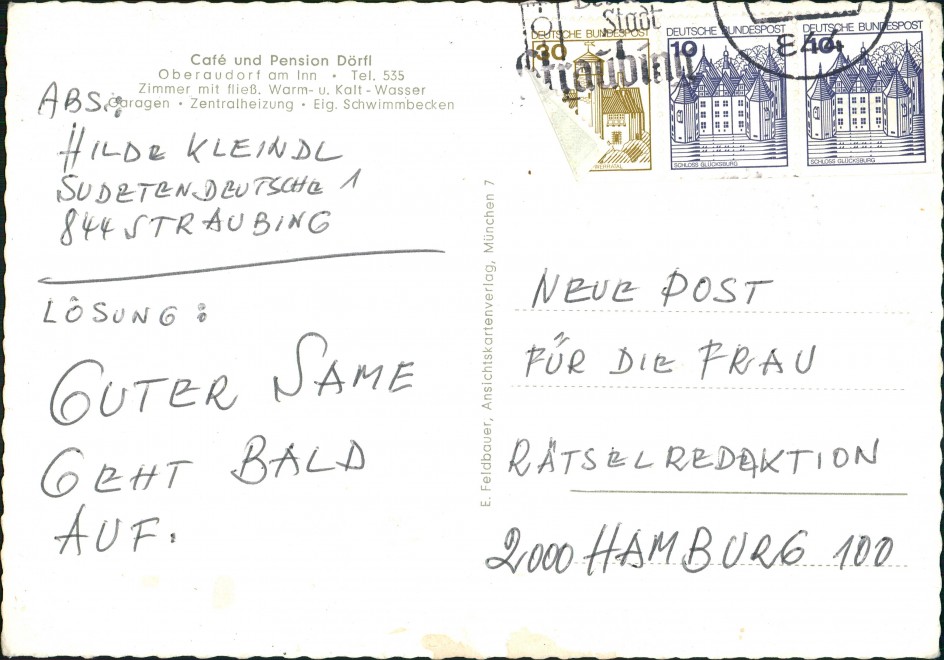 Café und Pension Dörfl
Oberaudorf am Inn • Tel. 535
Zimmer mit fließ. Warm- u. Kalt-Wasser
Garagen • Zentralheizung • Eig. Schwimmbecken
ABS.:
HILDE KLEINDL
SUDETENDEUTSCHE 1
844 STRAUBING
LÖSUNG:
GUTER SAME
GEHT BALD
AUF.
E. Feldbauer, Ansichtskartenverlag, München 7
Stadt
Straubing
844
DEUTSCHE BUNDESPOST
30
DEUTSCHE BUNDESPOST
10
SCHLOSS GLÜCKSBURG
DEUTSCHE BUNDESPOST
SCHLOSS GLÜCKSBURG
NEUE POST
FÜR DIE FRAU
RÄTSELREDAKTION
2000 HAMBURG 100